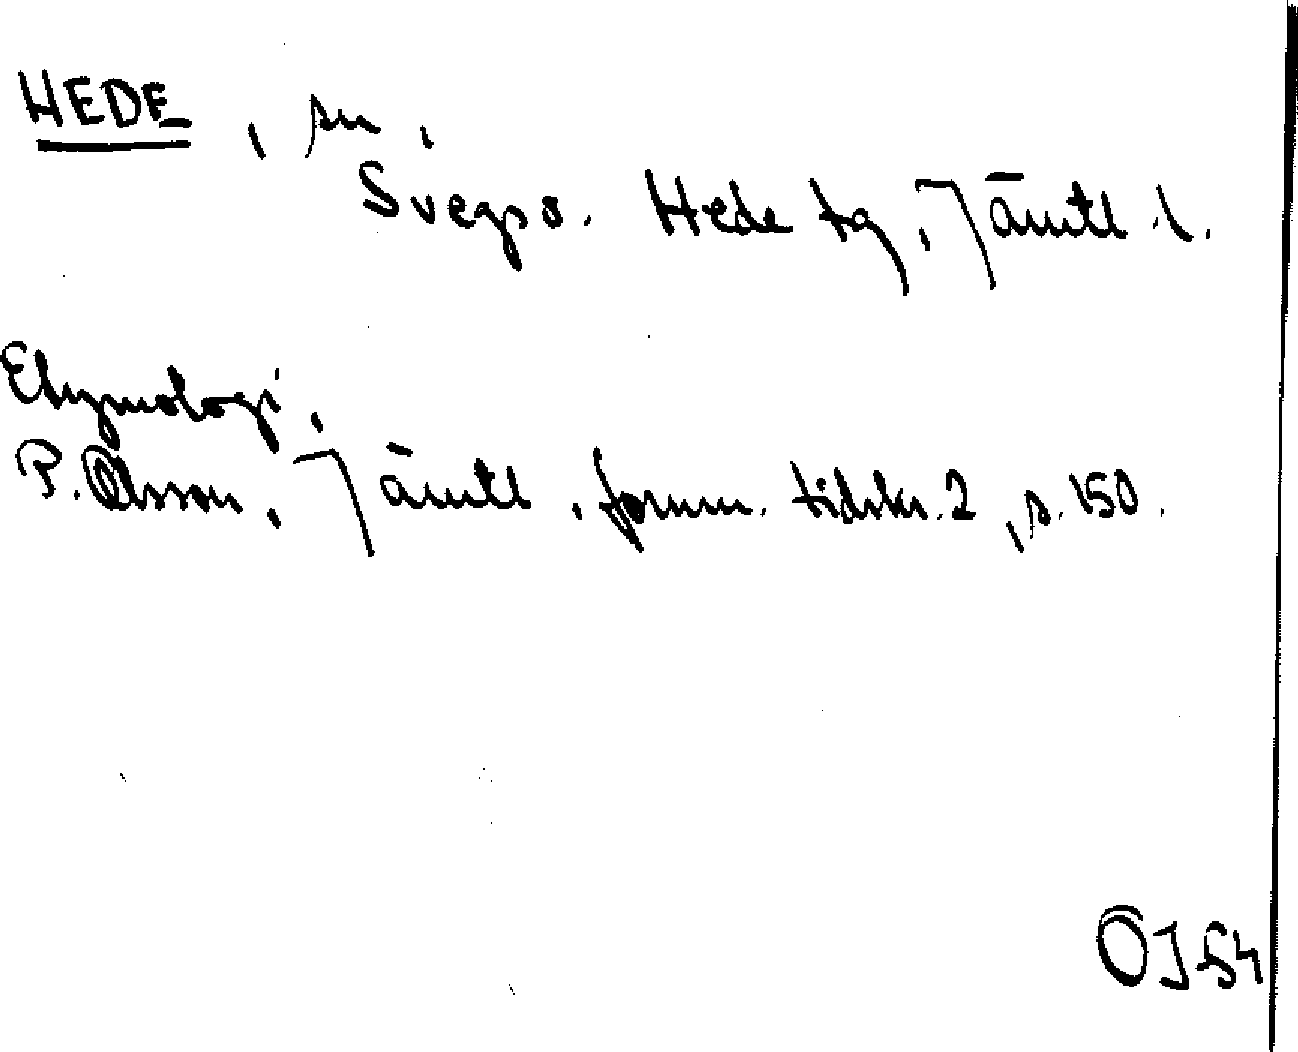 HEDE, sn,
Svegs s. Hede tg, Jämtl. l.
Etymologi,
P. Olsson, Jämtl. fornm. tidskr. 2, s. 150.
ÖJ 54